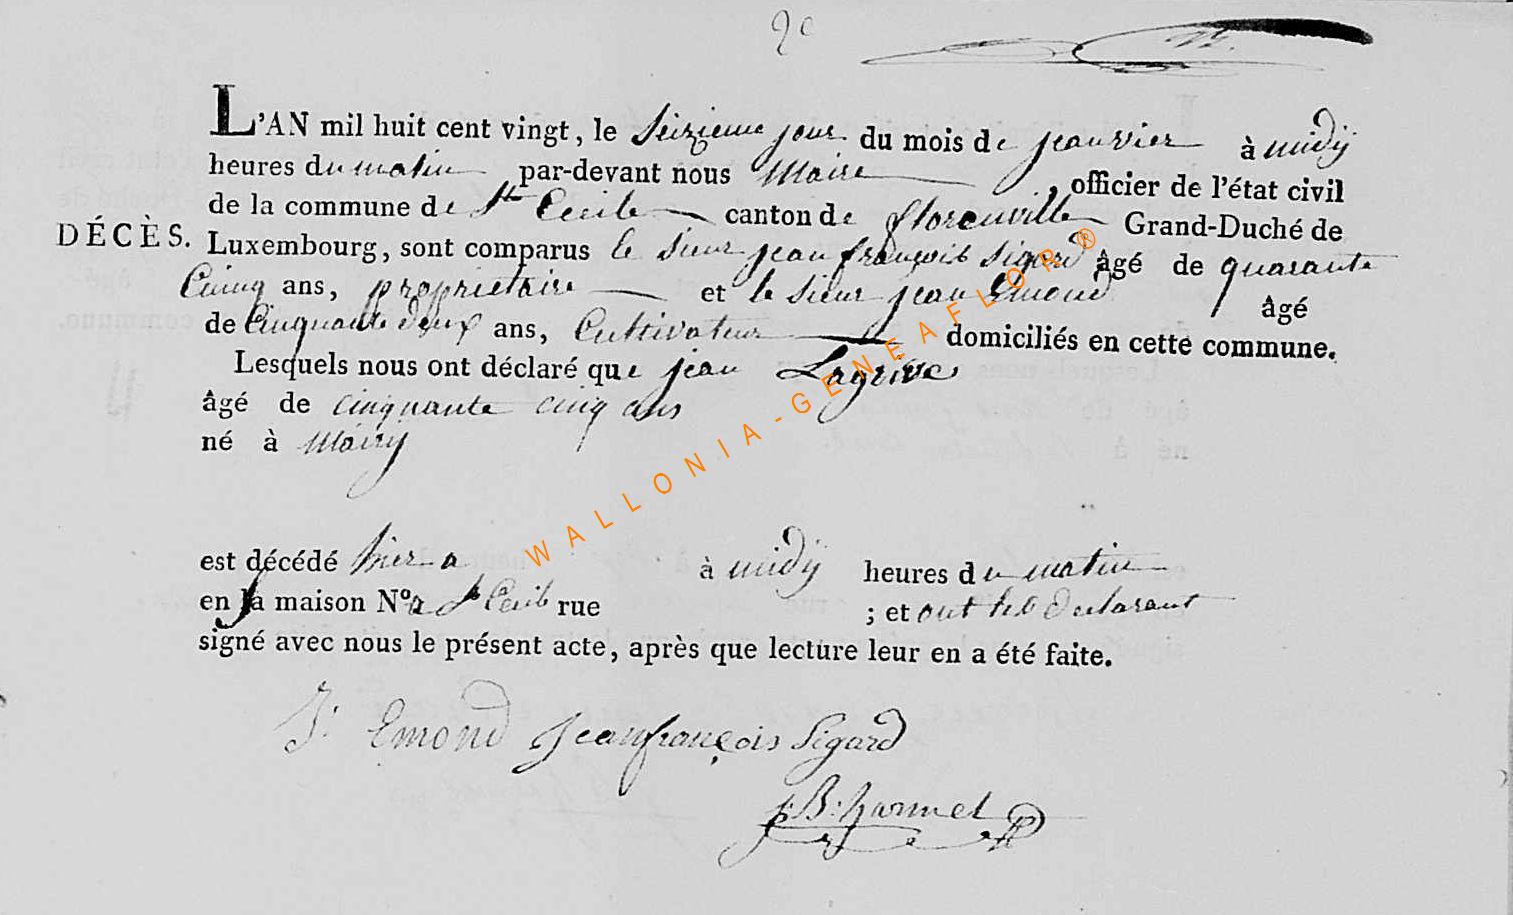 2e
L'AN mil huit cent vingt, le Seizieme jour du mois de jeanvier à midÿ
heures du matin par-devant nous Maire, officier de l'état civil
de la commune de Ste Cecile canton de florenville Grand-Duché de
DÉCÈS.
Luxembourg, sont comparus le sieur jean françois Sigard âgé de quarante
Cuinq ans, proprietaire et le sieur jean Emond âgé
de Cinquante deux ans, Cultivateur domiciliés en cette commune.
Lesquels nous ont déclaré que jean Lagrive
âgé de cinquante cinq ans
né à Mairy
est décédé hier a à midÿ heures du matin
en la maison N.º a Ste Cecile rue ; et ont les declarant
signé avec nous le présent acte, après que lecture leur en a été faite.
J: Emond Jeanfrançois Sigard
j:B: hannel
WALLONIA-GENEAFLOR®